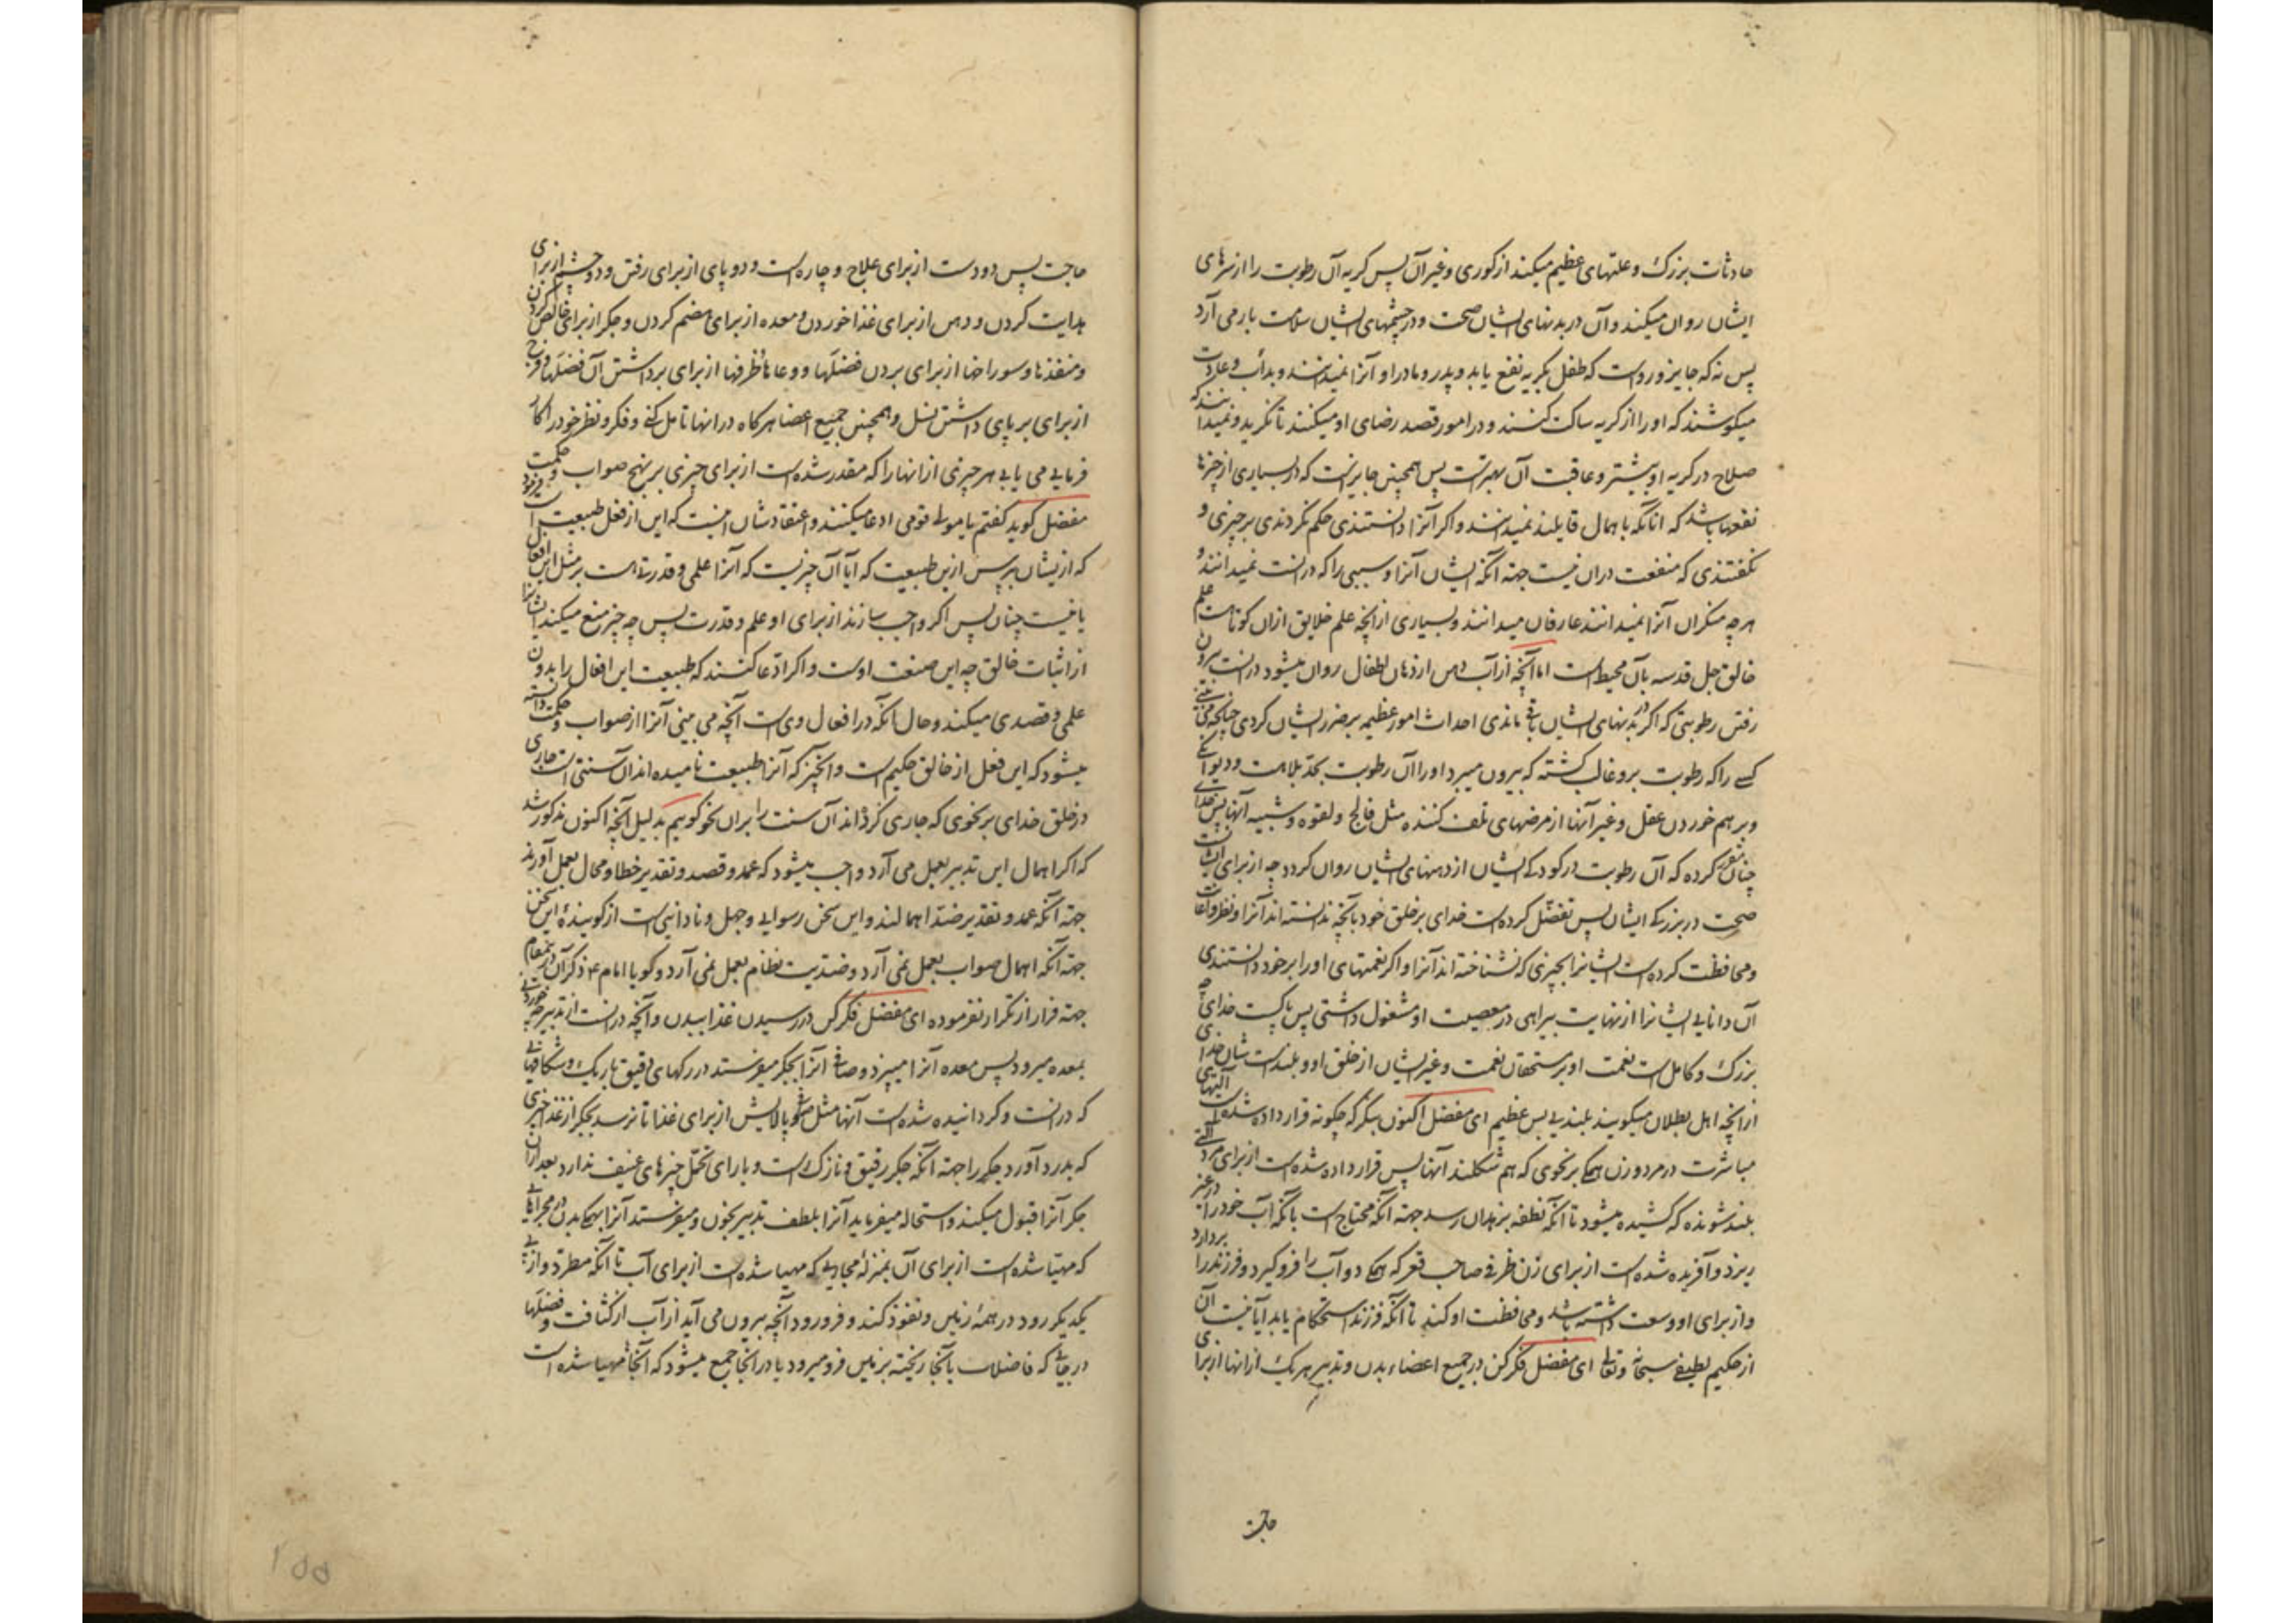 حادثات بزرک و علتهای عظیم میکند از کوری و غیر آن پس کریه آن رطوبت را از سرهای
ایشان روان میکند و آن در بدنهای ایشان صحت و در چشمهای ایشان سلامت بار می آرد
پس نه که جایز و رواست که طفل بکریه نفع یابد و پدر و مادر او آنرا نمیدانند و بدأب و عادت
میکوشند که او را از کریه ساکت کنند و در امور قصد رضای او میکنند تا نکرید و نمیدانند که
صلاح در کریه او بیشتر و عاقبت آن بهتر است پس همچنین جایز است که در بسیاری از چیزها
نفعها باشد که انانکه باهمال قایلند نمیدانند و اکر آنرا دانستندی حکم نکردندی بر چیزی و
نکفتندی که منفعت در ان نیست جهة آنکه ایشان آنرا و سببی را که در انست نمیدانند و
هر چه منکران آنرا نمیدانند عارفان میدانند و بسیاری از انچه علم خلایق ازان کوتاهست علم
خالق جل قدسه بآن محیط است اما آنچه از آب دهن از دهان اطفال روان میشود در انست بیرون
رفتن رطوبتی که اکر در بدنهای ایشان باقی ماندی احداث امور عظیمه بر ضرر ایشان کردی چنانچه می بینی
کسی را که رطوبت برو غالب کشته که بیرون میبرد او را آن رطوبت بحد بلاهت و دیوانکی
و بر هم خوردن عقل و غیر آنها از مرضهای تلف کننده مثل فالج و لقوه و شبیه آنها پس خدای
چنان مقرر کرده که آن رطوبت در کودکی ایشان از دهنهای ایشان روان کردد چه از برای ایشانست
صحت در بزرکی ایشان پس تفضل کرده است خدای بر خلق خود بآنچه ندانسته اند آنرا و نظر و اعانت
و محافظت کرده است ایشانرا بچیزی که نشناخته اند آنرا و اکر نعمتهای او را بر خود دانستندی
آن دانایی ایشانرا از نهایت بیراهی در معصیت او مشغول داشتی پس پاکست خدای چه
بزرک و کامل است نعمت او بر مستحقان نعمت و غیر ایشان از خلق او و بلند است شان خدای
از انچه اهل بطلان میکویند بلندیی بس عظیم ای مفضل اکنون بنکر که چکونه قرار داده شده است آلتهای
مباشرت در مرد و زن همکی بر نحوی که هم شکلند آنها پس قرار داده شده است از برای مرد آلتی
بلند شونده که کشیده میشود تا آنکه نطفه بزهدان رسد جهة آنکه محتاج است بآنکه آب خود را در غیر
ریزد و آفریده شده است از برای زن ظرفی صاحب قعر که همکی دو آب را فرو کیرد و فرزند را بردارد
و از برای او وسعت داشته باشد و محافظت او کند تا آنکه فرزند استحکام یابد آیا نیست آن
از حکیم لطیف سبحانه و تعالی ای مفضل فکر کن در جمیع اعضاء بدن و تدبیر هر یک از انها از برای
حاجت
حاجت پس دو دست از برای علاج و چاره است و دو پای از برای رفتن و دو چشم از برای
هدایت کردن و دهن از برای غذا خوردن و معده از برای هضم کردن و جکر از برای خالص کردن
و منفذها و سوراخها از برای بردن فضلها و وعاها و ظرفها از برای برداشتن آن فضلها و فرج
از برای برپای داشتن نسل و همچنین جمیع اعضا هر کاه در انها تامل کنی و فکر و نظر خود در کار
فرمایی می یابی هر چیزی از انها را که مقدر شده است از برای چیزی بر نهج صواب و حکمت
مفضل کوید کفتم یا مولی قومی ادعا میکنند و اعتقادشان اینست که این از فعل طبیعت است فرمود
که ازیشان بپرس ازین طبیعت که آیا آن چیزیست که آنرا علمی و قدرتیست بر مثل این افعال
یا نیست چنان پس اکر واجب سازند از برای او علم و قدرت پس چه چیز منع میکند ایشانرا
از اثبات خالق چه این صنعت اوست و اکر ادعا کنند که طبیعت این افعال را بدون
علمی و قصدی میکند و حال آنکه در افعال وی است آنچه می بینی آنرا از صواب و حکمت دانسته
میشود که این فعل از خالق حکیم است و آنچیز که آنرا طبیعت نامیده اند آن سنتی است جاری
در خلق خدای بر نحوی که جاری کردانید آن سنت را بران نحو کوییم بدلیل آنچه اکنون مذکور شد
که اکر اهمال این تدبیر بعمل می آرد واجب میشود که عمد و قصد و تقدیر خطا و محال بعمل آورند
جهة آنکه عمد و تقدیر ضد اهمالند و این سخن رسوایی و جهل و نادانیی است از کوینده این سخن
جهة آنکه اهمال صواب بعمل نمی آرد و ضدیت نظام بعمل نمی آرد و کویا امام ع ذکر آن درین مقام
جهة فرار از تکرار نفرموده ای مفضل فکر کن در رسیدن غذا ببدن و آنچه در انست از تدبیر چه خوردنی
بمعده میرود پس معده آنرا میپزد و صافی آنرا بجکر میفرستد در رکهای دقیق باریک و شکافهایی
که در انست و کردانیده شده است آنها مثل پالایش از برای غذا تا نرسد بجکر از غذا چیزی
که بدرد آورد جکر را جهة آنکه جکر رقیق و نازک است و یارای تحمل چیزهای عنیف ندارد بعد ازان
جکر آنرا قبول میکند و استحاله میفرماید آنرا بلطف تدبیر بخون و میفرستد آنرا بهمکی بدن در مجراهایی
که مهیا شده است از برای آن بمنزله مجاریی که مهیا شده است از برای آب تا آنکه مطرد و از پی
یکدیکر رود در همه زمین و نفوذ کند و فرو رود و آنچه بیرون می آید از آب از کثافت و فضلها
در جایی که فاضلات بآنجا ریخته بزمین فرو میرود یا در انجا جمع میشود که آنجا مهیا شده است